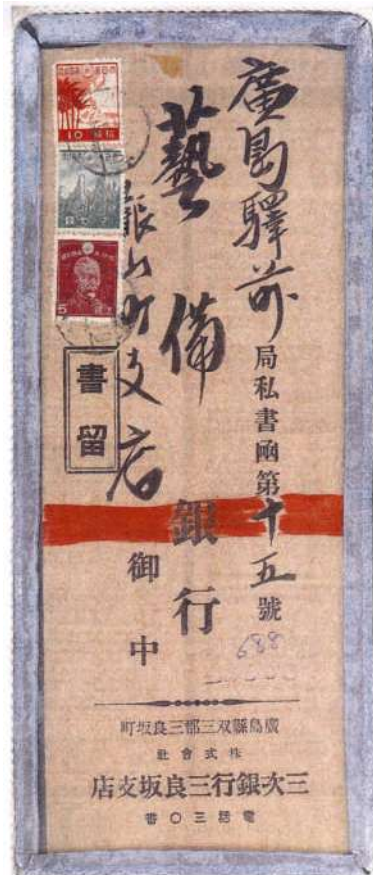 廣島驛前局私書凾第十五號
藝備銀行
銀山町支店御中
書留
10
5
688
廣島縣双三郡三良坂町
株式會社
三次銀行三良坂支店
電話三〇番